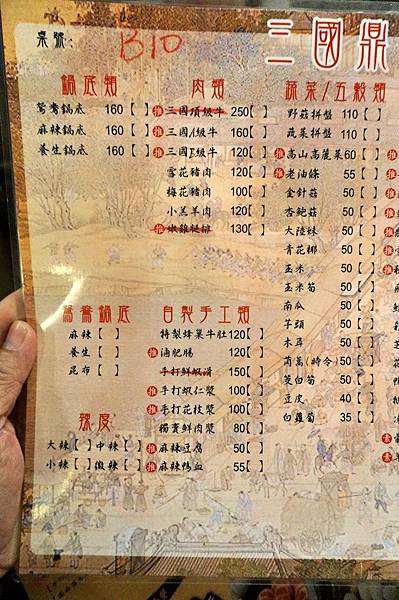 桌號： B10
三國鼎
鍋底類
鴛鴦鍋底 160【 】
麻辣鍋底 160【 】
養生鍋底 160【 】
肉類
推 三國頂級牛 250【 】
推 三國A級牛 160【 】
推 三國E級牛 120【 】
雪花豬肉 120【 】
梅花豬肉 100【 】
小羔羊肉 120【 】
推 嫩雞腿排 130【 】
蔬菜/五穀類
野菇拼盤 110【 】
蔬菜拼盤 110【 】
推 高山高麗菜60【 】
推 老油條 55【 】
金針菇 50【 】
杏鮑菇 50【 】
大陸妹 50【 】
青花椰 50【 】
玉米 50【 】
玉米筍 50【 】
南瓜 50【 】
芋頭 50【 】
木耳 50【 】
茼萵(時令)50【 】
筊白筍 50【 】
豆皮 40【 】
白蘿蔔 35【 】
鴛鴦鍋底
麻辣【 】
養生【 】
昆布【 】
辣度
大辣【 】中辣【 】
小辣【 】微辣【 】
自製手工類
特製蜂巢牛肚120【 】
推 滷肥腸 120【 】
手打鮮蝦滑 150【 】
推 手打蝦仁漿 100【 】
推 手打花枝漿 100【 】
獨賣鮮肉漿 80【 】
推 麻辣豆腐 50【 】
推 麻辣鴨血 55【 】